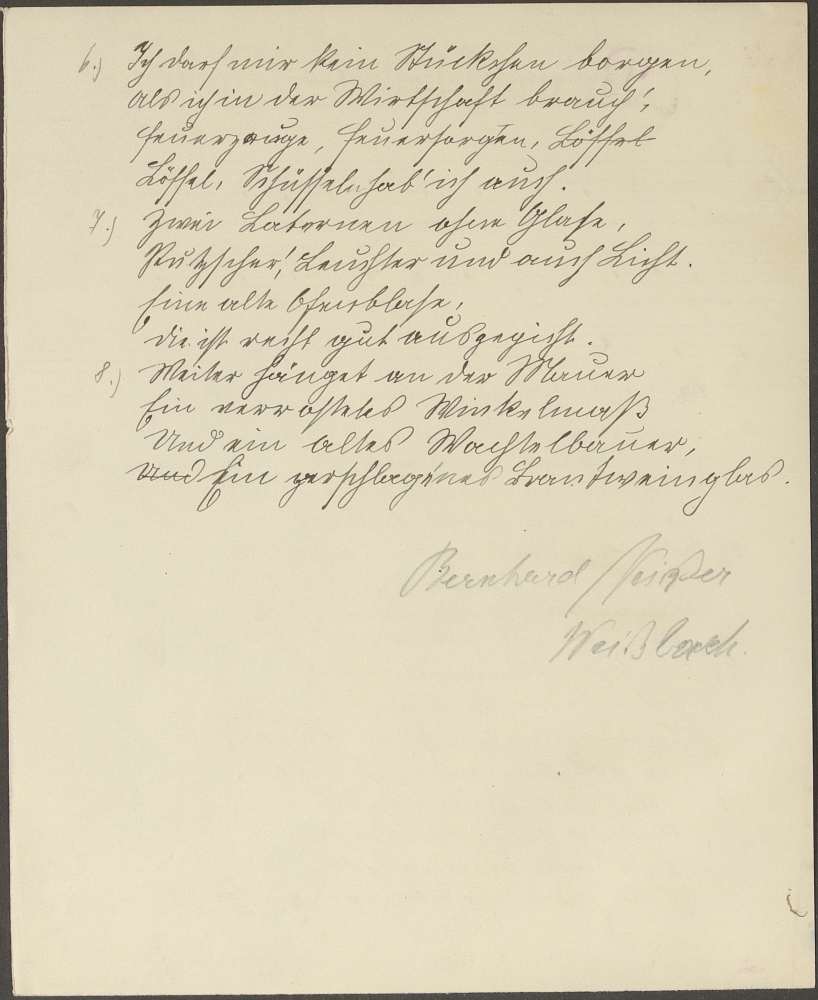 6.) Ich darf mir kein Stückchen borgen,
als ich in der Wirtschaft brauch',
Feuerzeuge, Feuersorgen, Löffel
Löffel, Schüsseln hab' ich auch.
7.) Zwei Laternen ohne Glase,
Putzscher', Leuchter und auch Licht.
Eine alte Ofenblase,
die ist recht gut ausgepicht.
8.) Weiter hänget an der Mauer
Ein verrostetes Winkelmaß
Und ein altes Wachtelbauer,
Und Ein zerschlagenes Brantweinglas.
Bernhard
Weißbach.